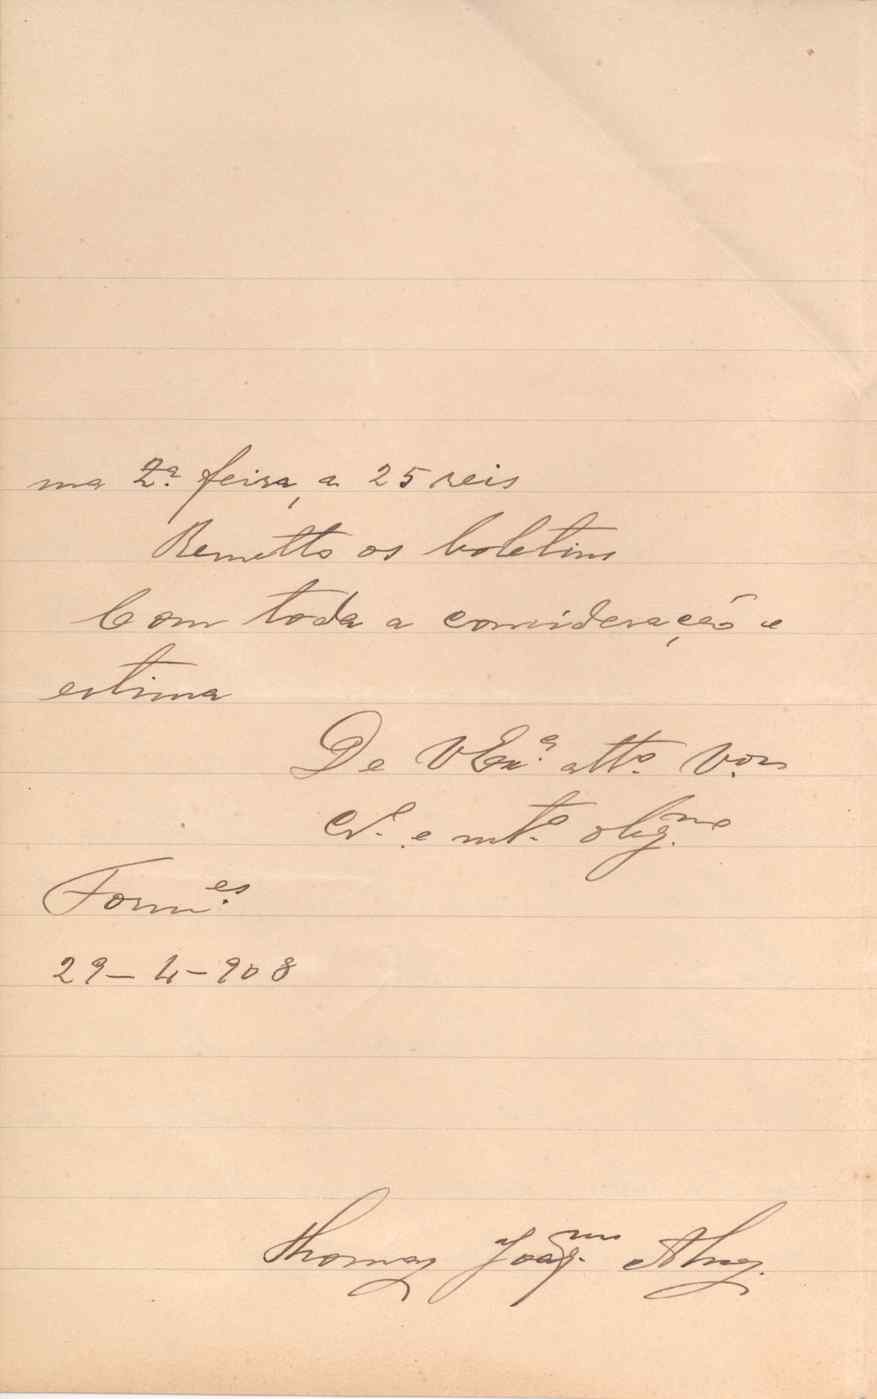 ma 2ª feira, a 25 reis
Remetto os boletins
Com toda a consideração e
estima
De V Exª attº Vor
Crº e mtº obrigmo
Formes
29-4-908
Thomaz Joaqm Alvz.